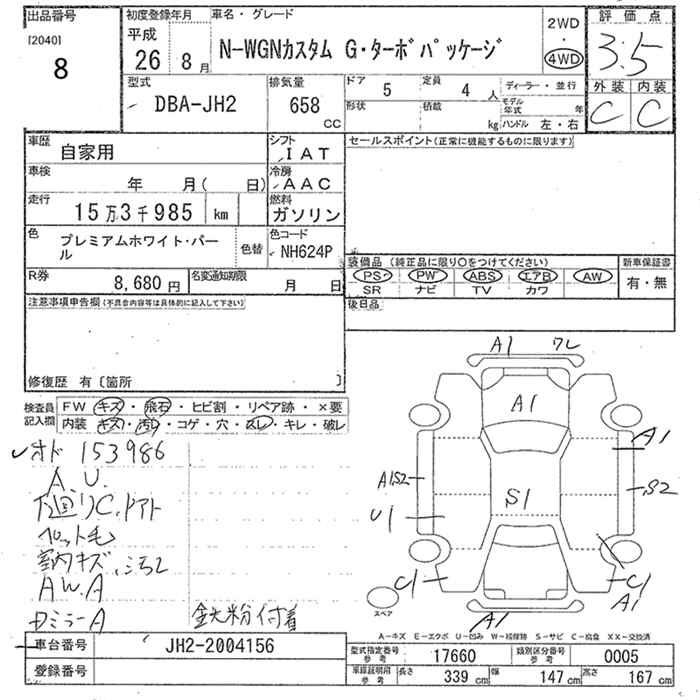 出品番号
[2040]
8
初度登録年月
平成
26 8月
車名・グレード
N-WGNカスタム G・ターボパッケージ
2WD
・
4WD
評価点
3.5
外装 内装
C C
型式
DBA-JH2
排気量
658
CC
ドア
5
定員
4 人
ディーラー・並行
形状
積載
kg
モデル年式 年
ハンドル 左・右
車歴
自家用
シフト
IAT
車検
年 月( 日)
冷房
AAC
走行
15万3千985 km
燃料
ガソリン
色
プレミアムホワイト・パール
色替
色コード
NH624P
R券
8,680円
名変通知期限
月 日
セールスポイント(正常に機能するものに限ります)
装備品 (純正品に限り○をつけてください)
PS・ PW・ ABS・ エアB・ AW・
SR ナビ TV カワ
新車保証書
有・無
後日品
注意事項申告欄(不具合内容等は具体的に記入して下さい)
修復歴 有〔箇所 〕
検査員記入欄
FW キズ・飛石・ヒビ割・リペア跡・×要
内装 キズ・汚れ・コゲ・穴・スレ・キレ・破レ
オド 153986
A.U.
下廻りC.ドアト
ペット毛
室内キズ.汚れ
A W.A
カミラーA
鉄粉付着
A1 ワレ
A1
A1
A1S2
S2
S1
U1
C1
C1
A1
A1
スペア
A-キズ E-エクボ U-凹み W-補修跡 S-サビ C-腐食 XX-交換済
車台番号
JH2-2004156
登録番号
型式指定番号
参考
17660
類別区分番号
参考
0005
車庫証明用
参考
長さ 339 cm
幅 147 cm
高さ 167 cm